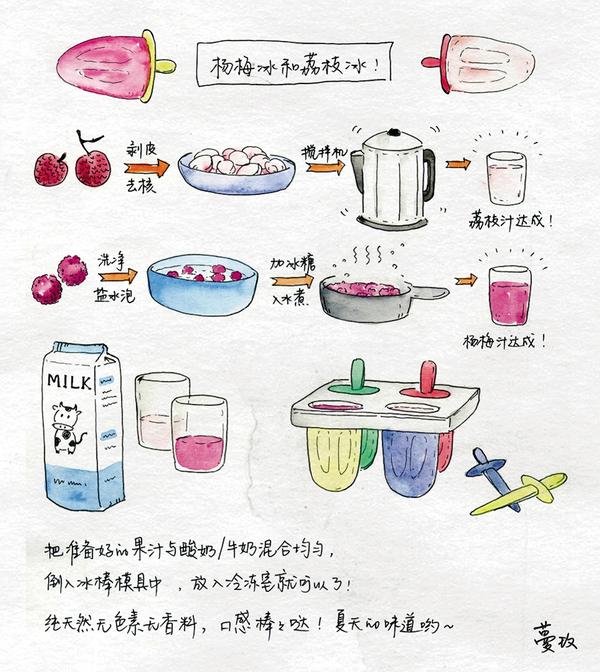 杨梅冰和荔枝冰！
剥皮
去核
搅拌机
荔枝汁达成！
洗净
盐水泡
加冰糖
入水煮
杨梅汁达成！
MILK
把准备好的果汁与酸奶/牛奶混合均匀，
倒入冰棒模具中，放入冷冻室就可以了！
纯天然无色素无香料，口感棒棒哒！夏天的味道哟~
蔓玫